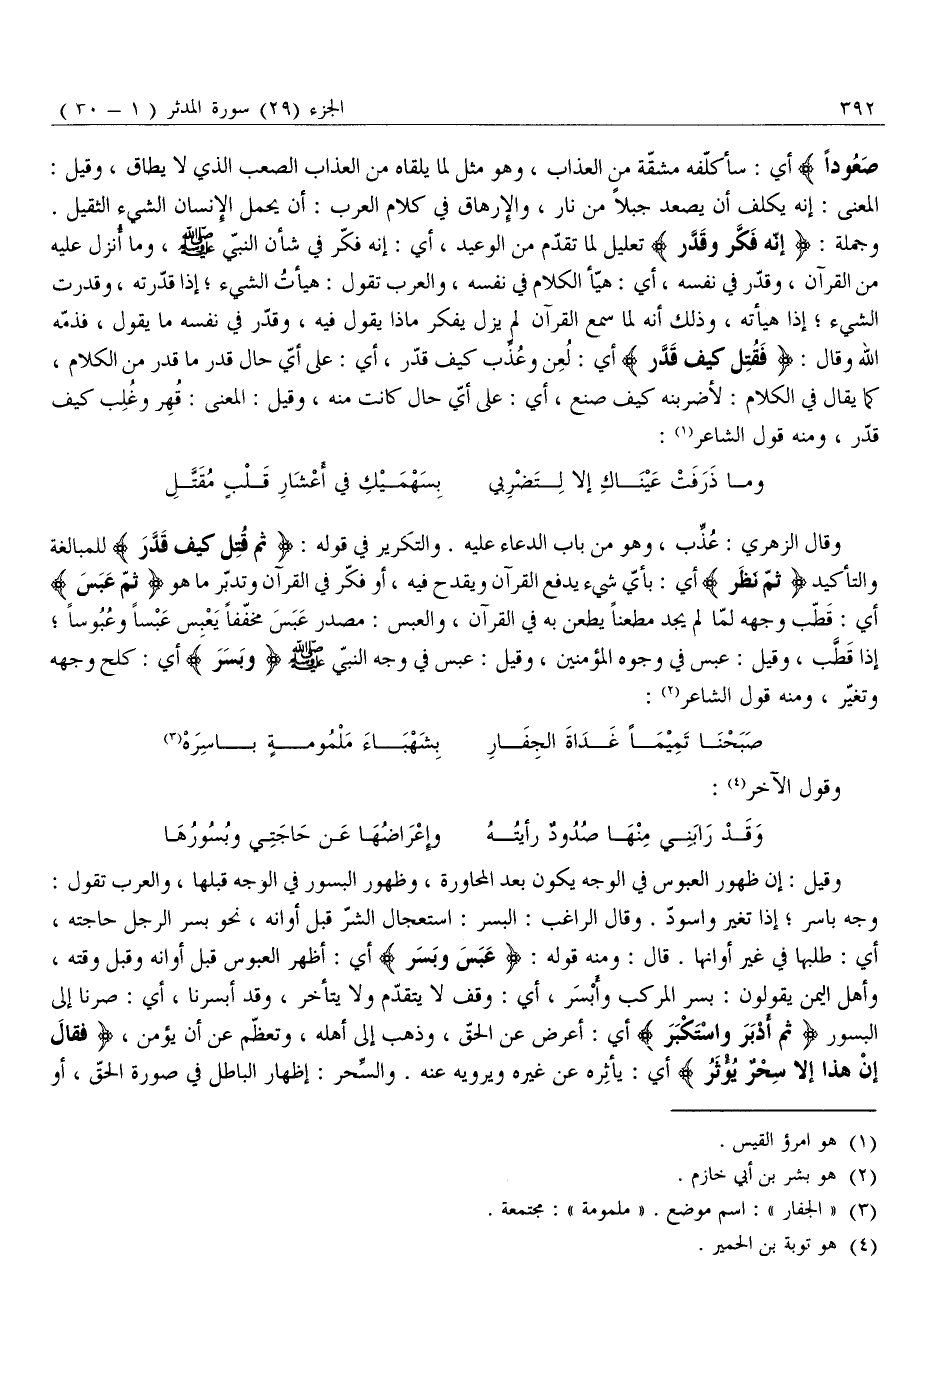 ٣٩٢ الجزء (٢٩) سورة المدثر ( ١ – ٣٠ )
صَعُوداً ﴾ أي : سأكلّفه مشقّة من العذاب ، وهو مثل لما يلقاه من العذاب الصعب الذي لا يطاق ، وقيل :
المعنى : إنه يكلف أن يصعد جبلاً من نار ، والإرهاق في كلام العرب : أن يحمل الإنسان الشيء الثقيل .
وجملة : ﴿ إنّه فَكَّر وقَدَّر ﴾ تعليل لما تقدّم من الوعيد ، أي : إنه فكّر في شأن النبيّ ﷺ ، وما أُنزل عليه
من القرآن ، وقدّر في نفسه ، أي : هيّأ الكلام في نفسه ، والعرب تقول : هيأتُ الشيء ؛ إذا قدّرته ، وقدرت
الشيء ؛ إذا هيأته ، وذلك أنه لما سمع القرآن لم يزل يفكر ماذا يقول فيه ، وقدّر في نفسه ما يقول ، فذمّه
الله وقال : ﴿ فَقُتِل كيف قَدَّر ﴾ أي : لُعِن وعُذِّب كيف قدّر ، أي : على أيّ حال قدر ما قدر من الكلام ،
كما يقال في الكلام : لأضربنه كيف صنع ، أي : على أيّ حال كانت منه ، وقيل : المعنى : قُهِر وغُلِب كيف
قدّر ، ومنه قول الشاعر(١) :
ومـا ذَرَفَتْ عَيْنَـاكِ إلا لِـتَضْرِبي بِسَهْمَـيْكِ في أَعْشَارِ قَـلْبٍ مُقَتَّـلِ
وقال الزهري : عُذِّب ، وهو من باب الدعاء عليه . والتكرير في قوله : ﴿ ثم قُتِل كيف قَدَّرَ ﴾ للمبالغة
والتأكيد ﴿ ثمّ نَظَر ﴾ أي : بأيّ شيء يدفع القرآن ويقدح فيه ، أو فكّر في القرآن وتدبّر ما هو ﴿ ثمّ عَبَسَ ﴾
أي : قَطّب وجهه لمّا لم يجد مطعناً يطعن به في القرآن ، والعبس : مصدر عَبَسَ مخفّفاً يَعْبِس عَبْساً وعُبُوساً ؛
إذا قَطَّب ، وقيل : عبس في وجوه المؤمنين ، وقيل : عبس في وجه النبيّ ﷺ ﴿ وبَسَرَ ﴾ أي : كلح وجهه
وتغيّر ، ومنه قول الشاعر(٢) :
صَبَحْنَـا تَمِيْمَـاً غَـدَاةَ الجِفَـارِ بِشَهْبَـاءَ مَلْمُومـةٍ بـاسِرَهْ(٣)
وقول الآخر(٤) :
وَقَـدْ رَابَنِـي مِنْهَـا صُدُودٌ رأيتُـهُ وإعْرَاضُهَـا عَـن حَاجَتِـي وبُسُورُهَـا
وقيل : إن ظهور العبوس في الوجه يكون بعد المحاورة ، وظهور البسور في الوجه قبلها ، والعرب تقول :
وجه باسر ؛ إذا تغير واسودّ . وقال الراغب : البسر : استعجال الشرّ قبل أوانه ، نحو بسر الرجل حاجته ،
أي : طلبها في غير أوانها . قال : ومنه قوله : ﴿ عَبَسَ وبَسَر ﴾ أي : أظهر العبوس قبل أوانه وقبل وقته ،
وأهل اليمن يقولون : بسر المركب وأَبْسَر ، أي : وقف لا يتقدّم ولا يتأخر ، وقد أبسرنا ، أي : صرنا إلى
البسور ﴿ ثم أَدْبَرَ واسْتَكْبَرَ ﴾ أي : أعرض عن الحقّ ، وذهب إلى أهله ، وتعظّم عن أن يؤمن ، ﴿ فقالَ
إنْ هذا إلا سِحْرٌ يُؤْثَرُ ﴾ أي : يأثِره عن غيره ويرويه عنه . والسِّحر : إظهار الباطل في صورة الحقّ ، أو
(١) هو امرؤ القيس .
(٢) هو بشر بن أبي خازم .
(٣) « الجفار » : اسم موضع . « ملمومة » : مجتمعة .
(٤) هو توبة بن الحمير .